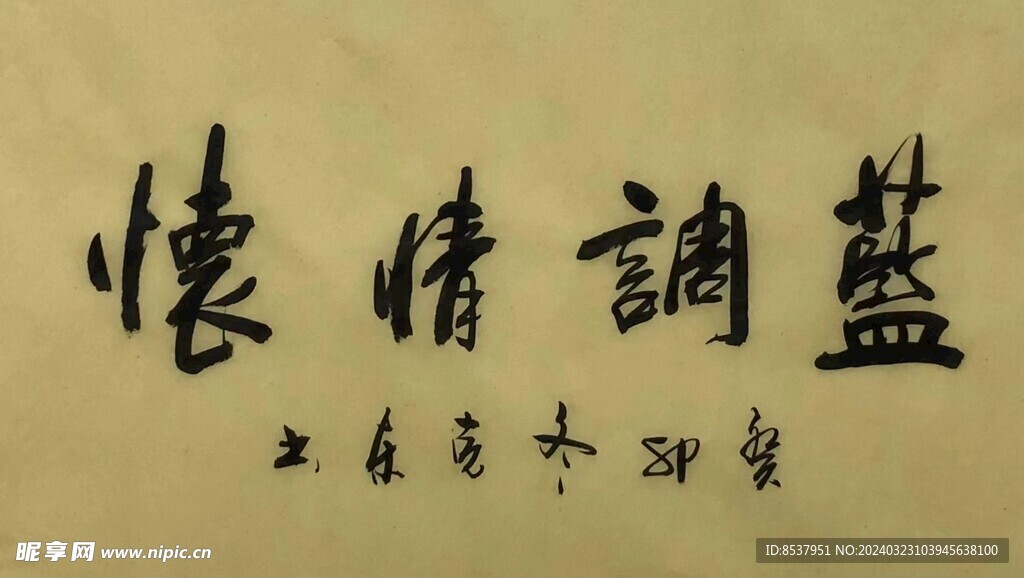 藍調情懷
癸卯冬克东书
昵享网 www.nipic.cn
ID:8537951 NO:20240323103945638100